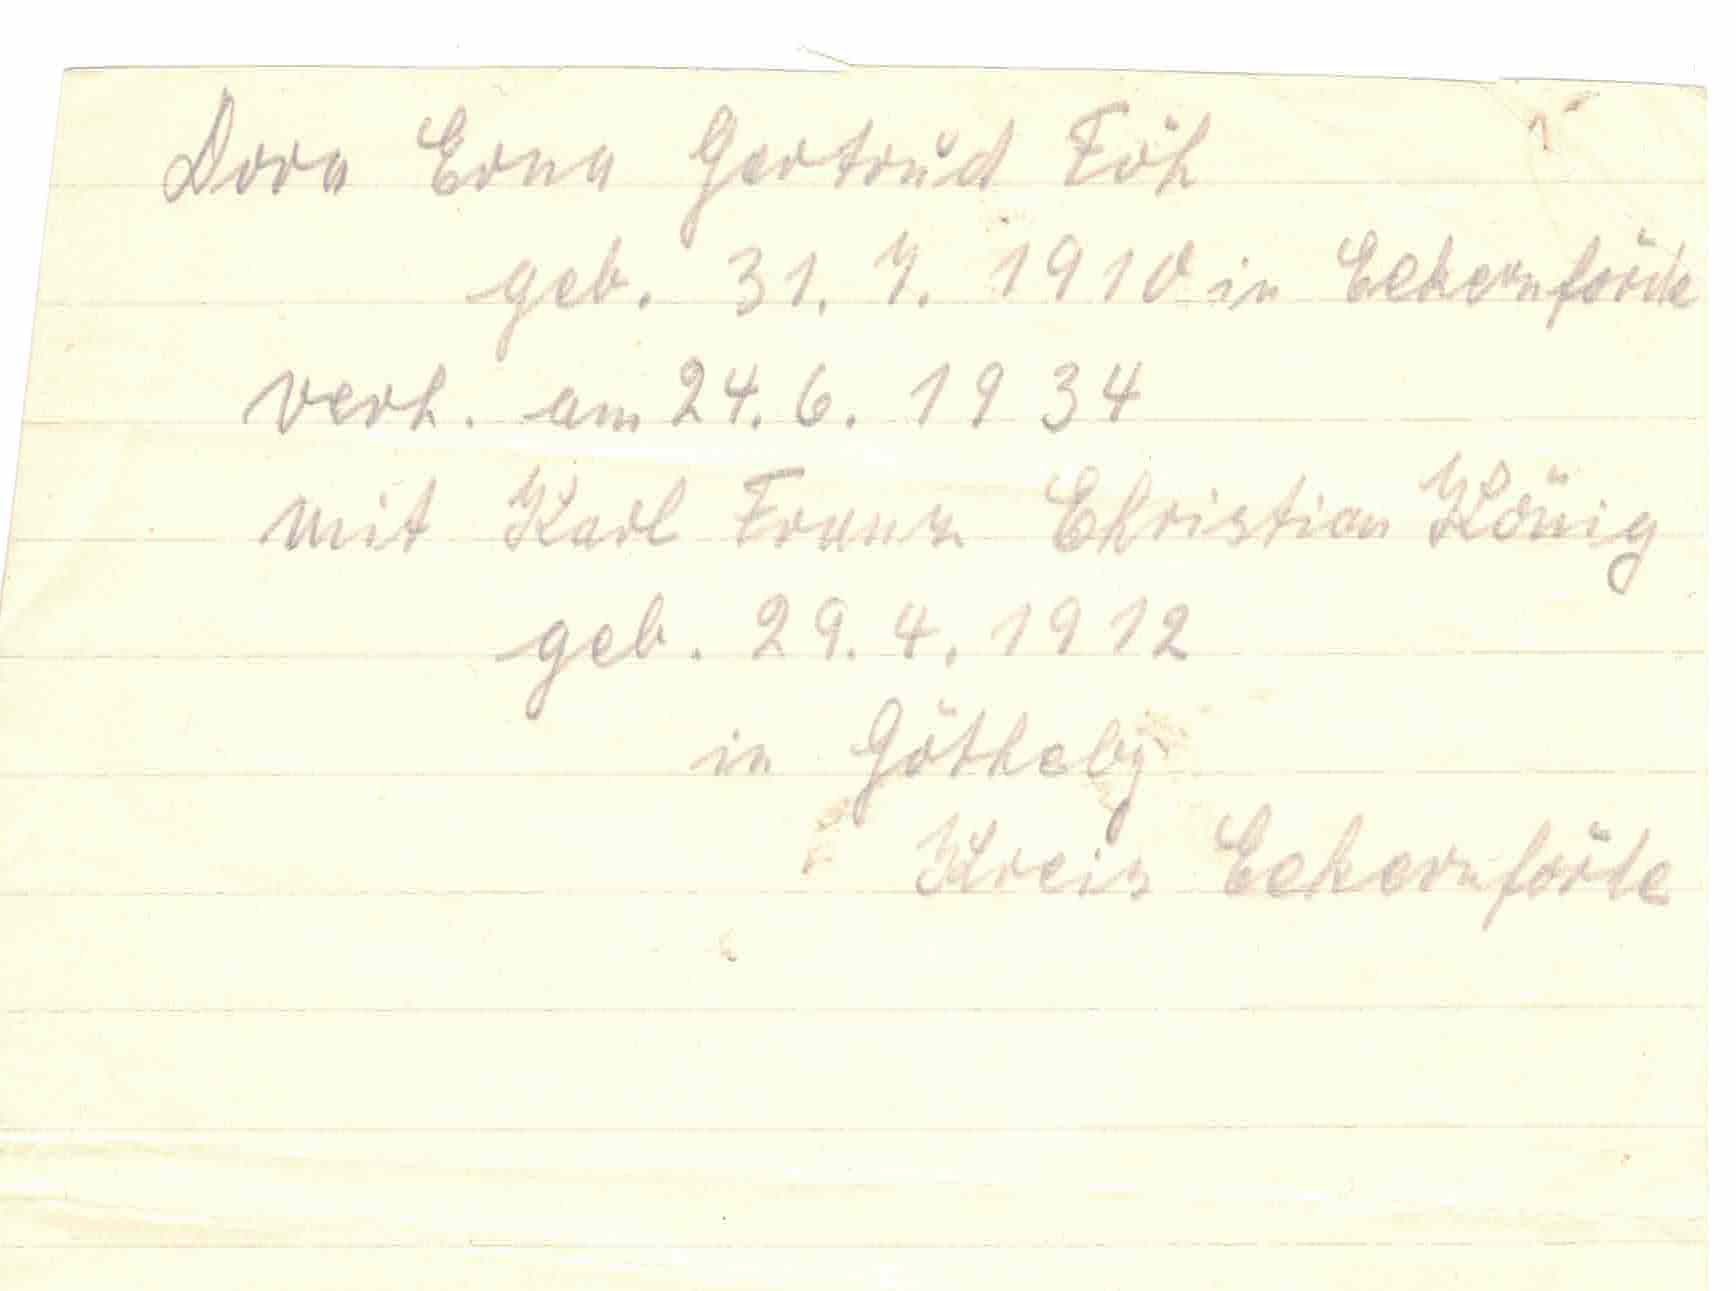 Dora Erna Gertrud Föh
geb. 31. 7. 1910 in Eckernförde
verh. am 24. 6. 1934
mit Karl Franz Christian König
geb. 29. 4. 1912
in Götheby
Kreis Eckernförde